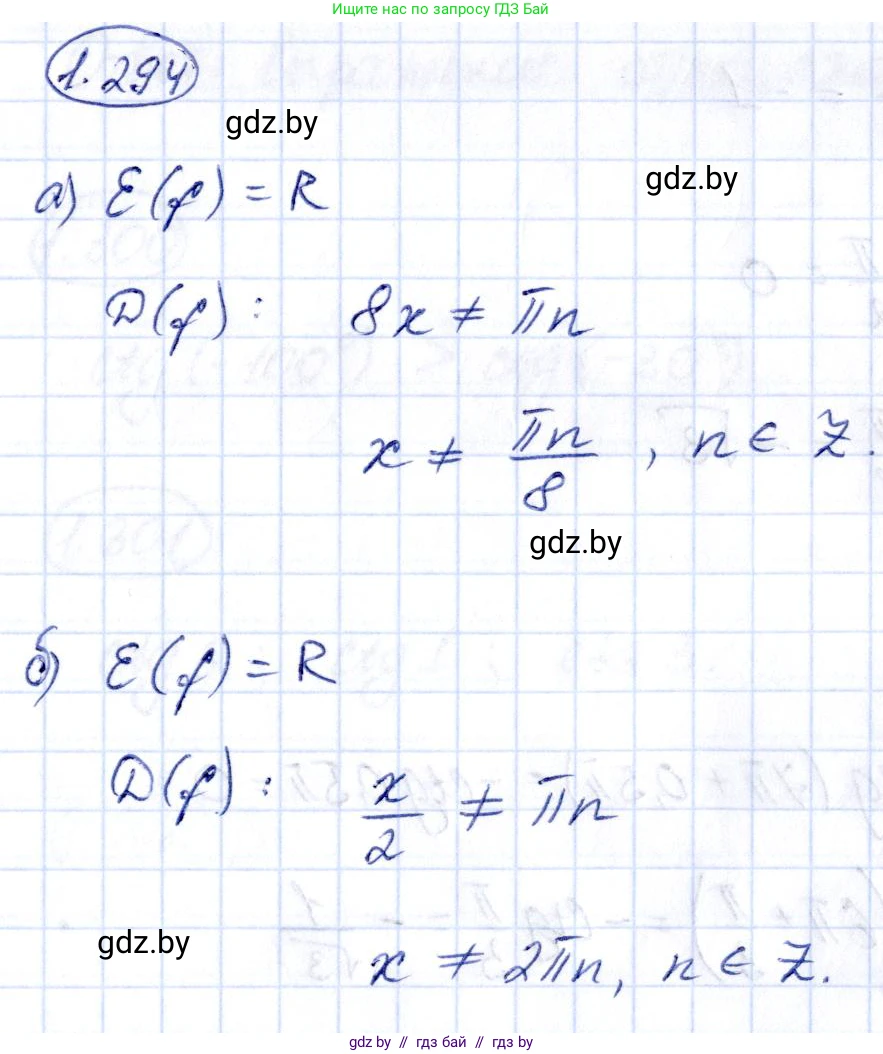 Ищите нас по запросу ГДЗ Бай
1.294
gdz.by
gdz.by
а) E(f) = R
D(f): 8x ≠ πn
x ≠ πn/8, n ∈ Z.
gdz.by
б) E(f) = R
D(f): x/2 ≠ πn
gdz.by
x ≠ 2πn, n ∈ Z.
gdz.by // гдз бай // гдз by